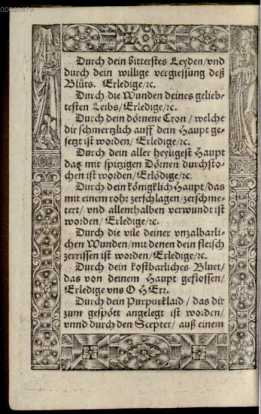 Durch dein bitterſtes Leyden/vnd
durch dein willige vergieſſung deß
Blůts. Erledige/ꝛc.
Durch die Wunden deines gelieb-
teſten Leibs/Erledige/ꝛc.
Durch dein dörnene Cron / welche
dir ſchmertzlich auff dein Haupt ge-
ſetzt iſt worden/ Erledige/ꝛc.
Durch dein aller heyligeſt Haupt
das mit ſpitzigen Dörnen durchſto-
chen iſt worden/ Erlödige/ꝛc.
Durch dein königklich Haupt/das
mit einem rohr zerſchlagen/zerſchme-
tert/ vnd allenthalben verwundt iſt
worden/ Erledige/ꝛc.
Durch die vile deiner vnzalbarli-
chen Wunden/mit denen dein fleiſch
zerriſſen iſt worden/Erledige/ꝛc.
Durch dein koſtbarliches Bluet/
das von deinem Haupt gefloſſen/
Erledige vns O HErr.
Durch dein Purpurklaid / das dir
zum geſpött angelegt iſt worden/
vnnd durch den Scepter/ auß einem